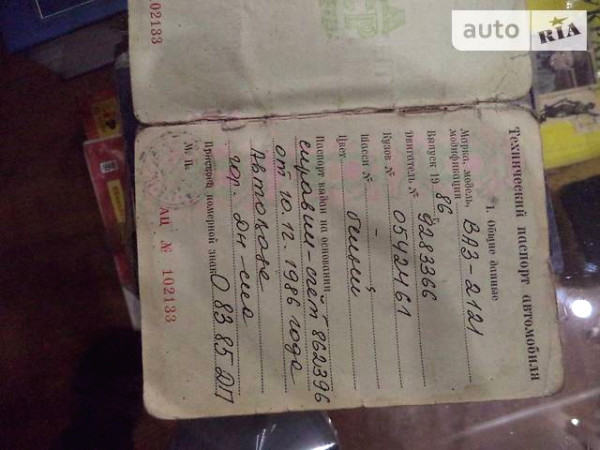 auto RIA
102133
Технический паспорт автомобиля
1. Общие данные
Марка, модель, ВАЗ-2121
модификация
Выпуск 19 86
Двигатель № 9283366
Кузов № 0542461
Шасси № -
Цвет белый
Паспорт выдан на основании
справки-счёт 862396
от 10.12.1986 года
Автобаза
гор. Дн-ска
Присвоен номерной знак О 83 85 ДП
М. П. АЦ № 102133